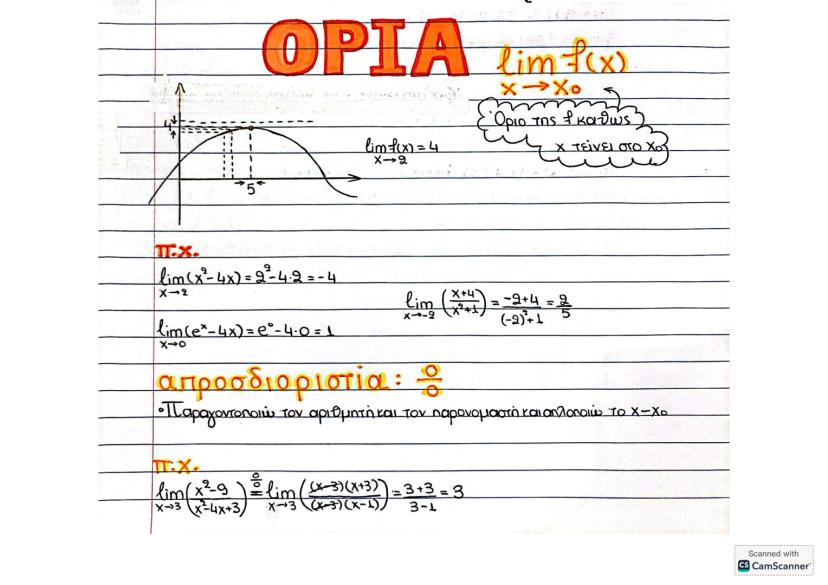 ΟΡΙΑ
lim f(x)
x→x₀
Όριο της f καθώς
x τείνει στο x₀
4
5
lim f(x) = 4
x→2
π.χ.
lim (x²-4x) = 2²-4·2 = -4
x→2
lim (x+4 / x²+1) = -2+4 / (-2)²+1 = 2/5
x→-2
lim (eˣ-4x) = e⁰-4·0 = 1
x→0
απροσδιοριστία: 0/0
•Παραγοντοποιώ τον αριθμητή και τον παρονομαστή και απλοποιώ το x-x₀
π.χ.
lim (x²-9 / x²-4x+3) 0/0 = lim ((x-3)(x+3) / (x-3)(x-1)) = 3+3 / 3-1 = 3
x→3 x→3
Scanned with
CS CamScanner